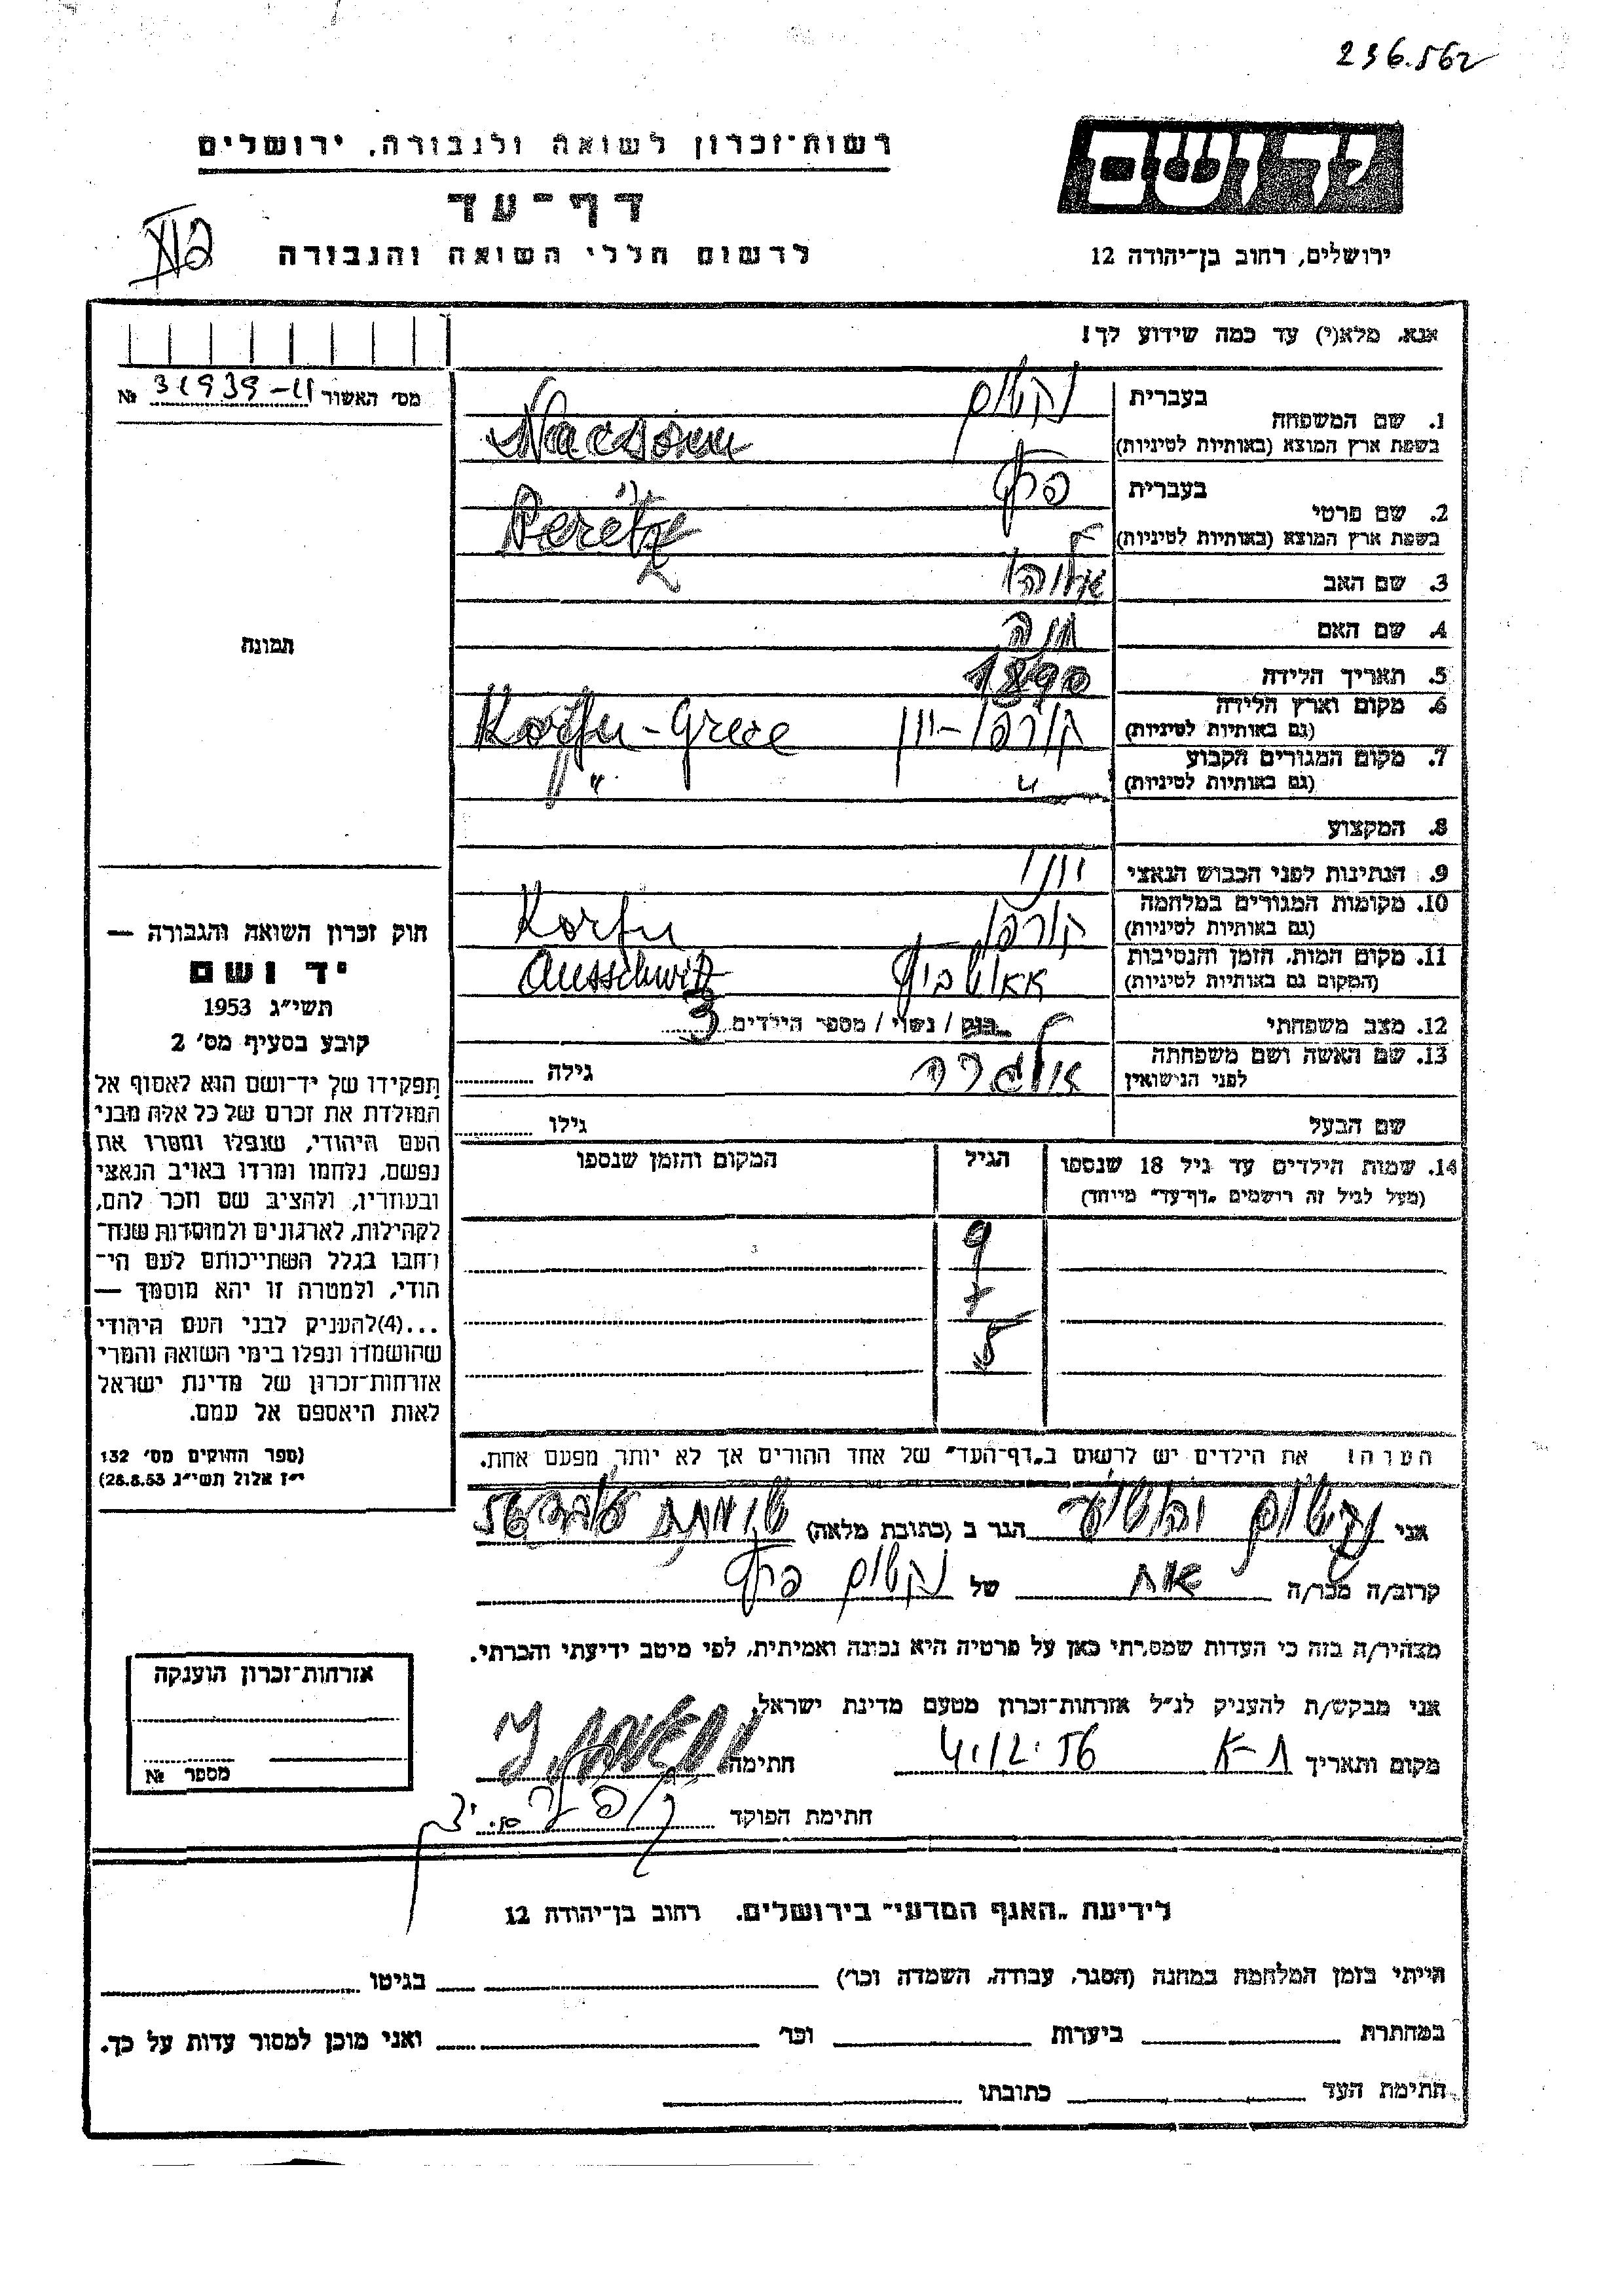 236.562
רשות־זכרון לשואה ולגבורה, ירושלים
יד ושם
דף־עד
לרשום חללי השואה והגבורה
ירושלים, רחוב בן־יהודה 12
אנא, מלא(י) עד כמה שידוע לך!
מס׳ האשור 31939-11 №
תמונה
1. שם המשפחה
בעברית נקשום
בשפת ארץ המוצא (באותיות לטיניות) Nacsonn
2. שם פרטי
בעברית פרץ
בשפת ארץ המוצא (באותיות לטיניות) Peretz
3. שם האב אליהו
4. שם האם חנה
5. תאריך הלידה 1890
6. מקום וארץ הלידה
(גם באותיות לטיניות) קורפו - יוון Korfu - Grece
7. מקום המגורים הקבוע
(גם באותיות לטיניות) " "
8. המקצוע
9. הנתינות לפני הכבוש הנאצי יווני
10. מקומות המגורים במלחמה
(גם באותיות לטיניות) קורפו Korfu
11. מקום המות, הזמן והנסיבות
(המקום גם באותיות לטיניות) אאושביץ Ausschwitz
12. מצב משפחתי רווק / נשוי / מספר הילדים 3
13. שם האשה ושם משפחתה
לפני הנישואין גילה
שם הבעל גילו
14. שמות הילדים עד גיל 18 שנספו
(מעל לגיל זה רושמים „דף־עד״ מיוחד)
הגיל
המקום והזמן שנספו
9
7
5
הערה! את הילדים יש לרשום ב„דף־העד״ של אחד ההורים אך לא יותר מפעם אחת.
חוק זכרון השואה והגבורה —
יד ושם
תשי״ג 1953
קובע בסעיף מס׳ 2
תפקידו של יד־ושם הוא לאסוף אל
המולדת את זכרם של כל אלה מבני
העם היהודי, שנפלו ומסרו את
נפשם, נלחמו ומרדו באויב הנאצי
ובעוזריו, ולהציב שם וזכר להם,
לקהילות, לארגונים ולמוסדות שנח־
רבו בגלל השתייכותם לעם הי־
הודי, ולמטרה זו יהא מוסמך —
...(4)להעניק לבני העם היהודי
שהושמדו ונפלו בימי השואה והמרי
אזרחות־זכרון של מדינת ישראל
לאות היאספם אל עמם.
(ספר החוקים מס׳ 132
י״ז אלול תשי״ג 28.8.53)
אני נקשום יהושע הגר ב (כתובת מלאה)
קרוב/ה מכר/ה אח של נקשום פרץ
מצהיר/ה בזה כי העדות שמסרתי כאן על פרטיה היא נכונה ואמיתית, לפי מיטב ידיעתי והכרתי.
אני מבקש/ת להעניק לנ״ל אזרחות־זכרון מטעם מדינת ישראל,
מקום ותאריך ת-א 4.12.56 חתימה
חתימת הפוקד
אזרחות־זכרון הוענקה
מספר №
לידיעת „האגף המדעי״ בירושלים, רחוב בן־יהודה 12
הייתי בזמן המלחמה במחנה (הסגר, עבודה, השמדה וכו׳) בגיטו
במחתרת ביערות וכו׳ ואני מוכן למסור עדות על כך.
חתימת העד כתובתו